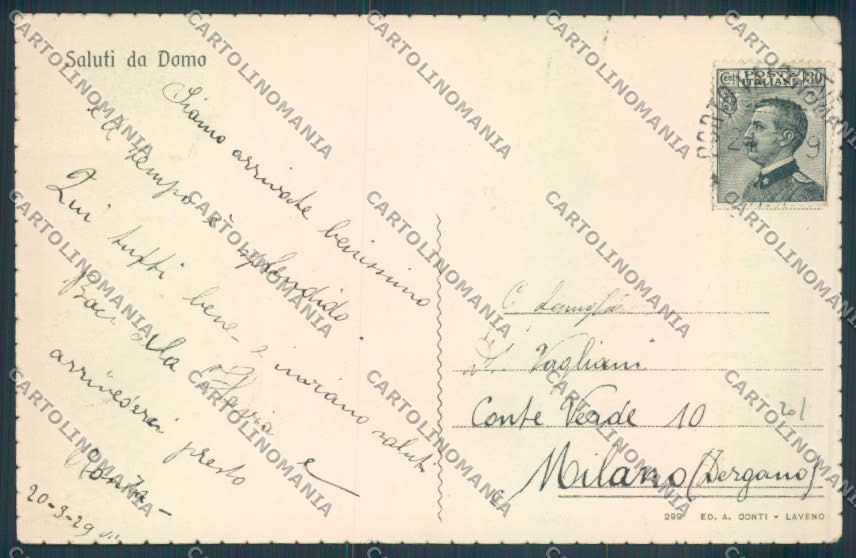 Saluti da Domo
Siamo arrivate benissimo
e il tempo è splendido.
Qui tutti bene e inviano saluti
Baci alla Maria e
arrivederci presto
20-3-29
Cent 30
POSTE
ITALIANE
PORTO
C. Famiglia
Vagliani
Conte Verde 10
201
Milano (Dergano)
299 ED. A. CONTI - LAVENO
CARTOLINOMANIA